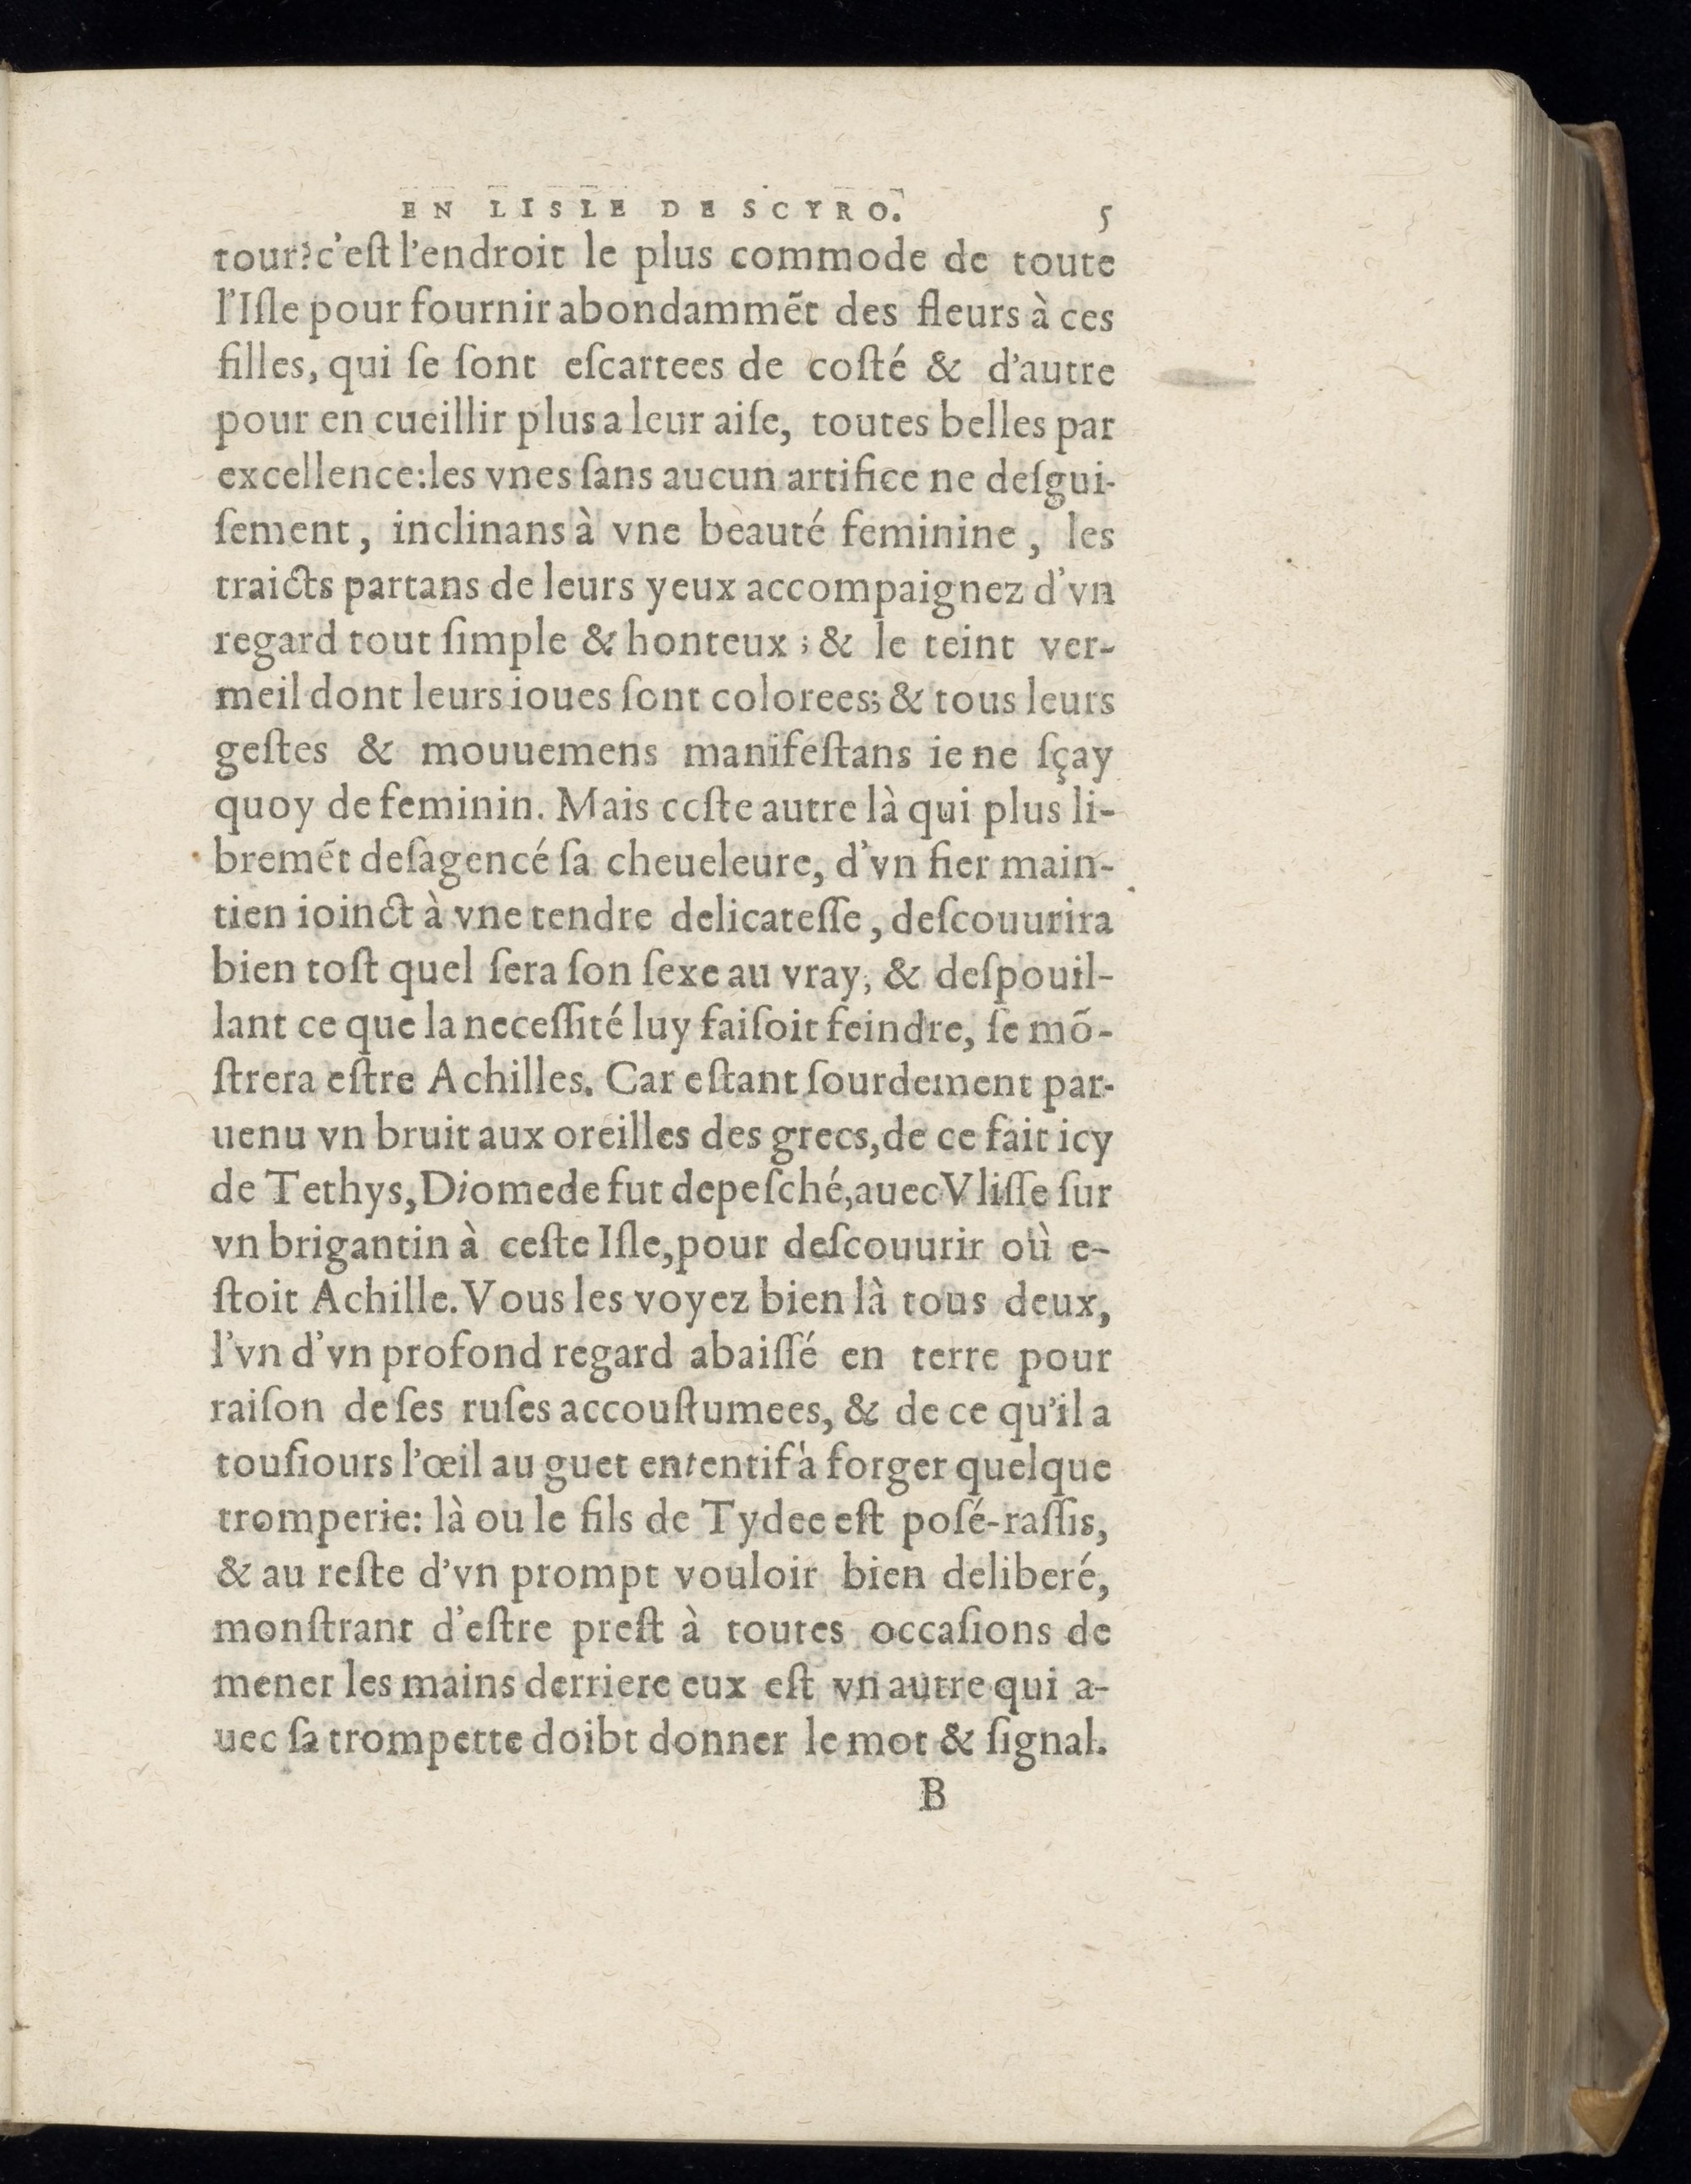 EN LISLE DE SCYRO. 5
tour?c'eſt l'endroit le plus commode de toute
l'Iſle pour fournir abondammẽt des fleurs à ces
filles, qui ſe ſont eſcartees de coſté & d'autre
pour en cueillir plus a leur aiſe, toutes belles par
excellence:les vnes ſans aucun artifice ne deſgui-
ſement, inclinans à vne beauté feminine, les
traicts partans de leurs yeux accompaignez d'vn
regard tout ſimple & honteux ; & le teint ver-
meil dont leurs ioues ſont colorees; & tous leurs
geſtes & mouuemens manifeſtans ie ne ſçay
quoy de feminin. Mais ceſte autre là qui plus li-
bremẽt deſagencé ſa cheueleure, d'vn fier main-
tien ioinct à vne tendre delicateſſe, deſcouurira
bien toſt quel ſera ſon ſexe au vray, & deſpouil-
lant ce que la neceſſité luy faiſoit feindre, ſe mõ-
ſtrera eſtre Achilles. Car eſtant ſourdement par-
uenu vn bruit aux oreilles des grecs,de ce fait icy
de Tethys,Diomede fut depeſché,auec Vliſſe ſur
vn brigantin à ceſte Iſle,pour deſcouurir où e-
ſtoit Achille. Vous les voyez bien là tous deux,
l'vn d'vn profond regard abaiſſé en terre pour
raiſon de ſes ruſes accouſtumees, & de ce qu'il a
touſiours l'œil au guet ententif à forger quelque
tromperie: là ou le fils de Tydee eſt poſé-raſſis,
& au reſte d'vn prompt vouloir bien deliberé,
monſtrant d'eſtre preſt à toutes occaſions de
mener les mains derriere eux eſt vn autre qui a-
uec ſa trompette doibt donner le mot & ſignal.
B